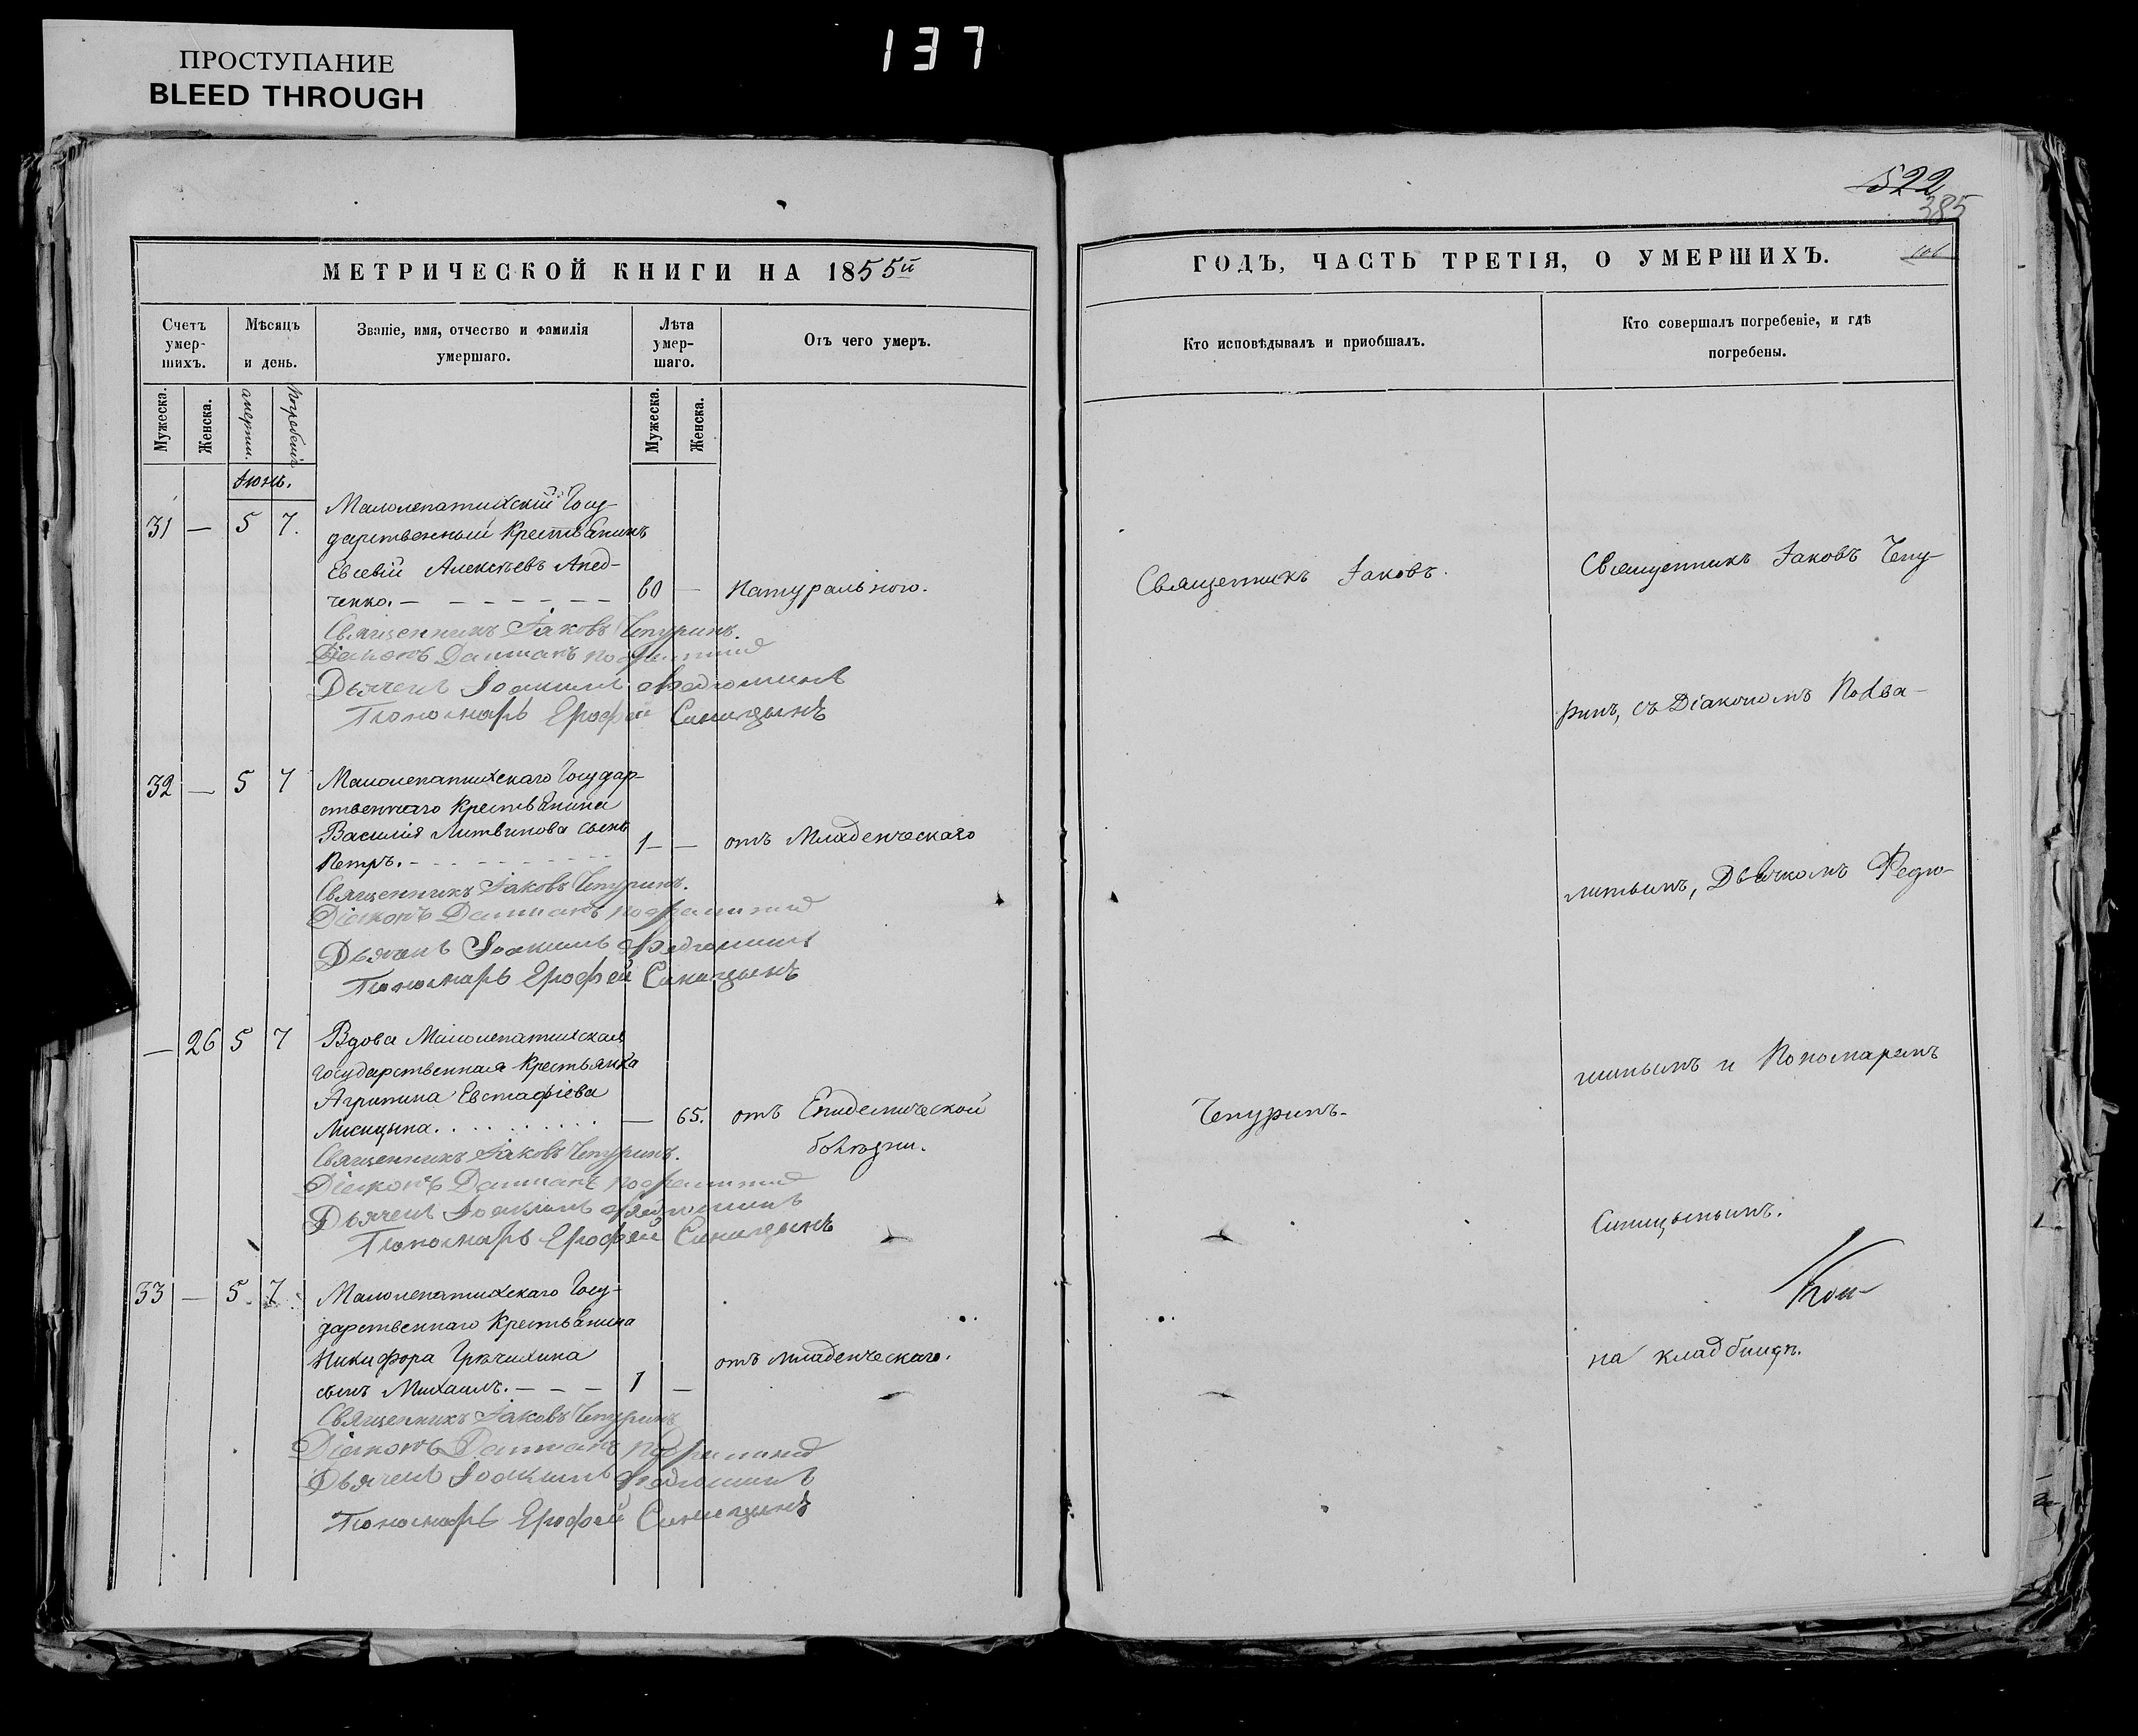 ПРОСТУПАНИЕ
BLEED THROUGH
137
522
385
106
МЕТРИЧЕСКОЙ КНИГИ НА 1855й
Счетъ умер-шихъ.
Мѣсяцъ и день.
Званіе, имя, отчество и фамилія умершаго.
Лѣта умер-шаго.
Отъ чего умеръ.
Мужеска.
Женска.
смерти.
погребенія
Мужеска.
Женска.
Іюнь.
31 — 5 7.
Малолепатихскій Госу-
дарственный Крестьянинъ
Евсевій Алексѣевъ
ченко. — 60 — Натуральною.
Священникъ Іаковъ Чепуринъ.
Діаконъ Даміанъ
Дьячекъ Іоакимъ Федюшинъ
Пономарь Ерофей Синицынъ
32 — 5 7
Малолепатихскаго Государ-
ственнаго Крестьянина
Василія Литвинова сынъ
Петръ. — 1 — отъ Младенческаго
Священникъ Іаковъ Чепуринъ.
Діаконъ Даміанъ
Дьячекъ Іоакимъ Федюшинъ
Пономарь Ерофей Синицынъ
— 26 5 7
Вдова Малолепатихская
государственная Крестьянка
Агрипина Евстафіева
Лисицына. — 65. отъ Епидемической
болѣзни.
Священникъ Іаковъ Чепуринъ.
Діаконъ Даміанъ
Дьячекъ Іоакимъ Федюшинъ
Пономарь Ерофей Синицынъ
33 — 5 7
Малолепатихскаго Госу-
дарственнаго Крестьянина
Никифора Гречихина
сынъ Михаилъ. — 1 — отъ младенческаго.
Священникъ Іаковъ Чепуринъ
Діаконъ Даміанъ
Дьячекъ Іоакимъ Федюшинъ
Пономарь Ерофей Синицынъ
ГОДЪ, ЧАСТЬ ТРЕТІЯ, О УМЕРШИХЪ.
Кто исповѣдывалъ и пріобщалъ.
Кто совершалъ погребеніе, и гдѣ
погребены.
Священникъ Іаковъ.
Чепуринъ.
Священникъ Іаковъ Чепу-
ринъ, съ Діакономъ
Дьячкомъ Федю-
шинымъ и Пономаремъ
Синицынымъ.
на кладбищѣ.